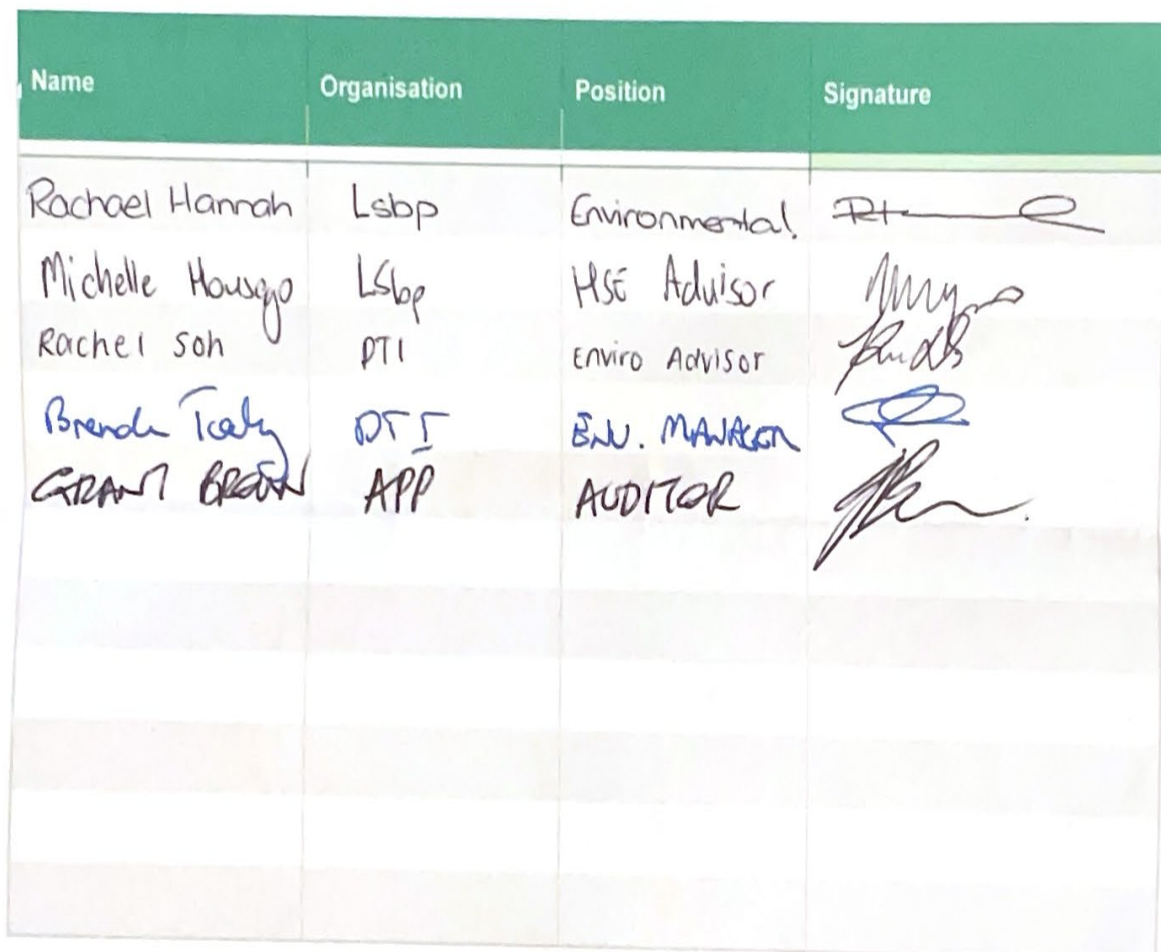 Name Organisation Position Signature
Rachael Hannah Lsbp Environmental.
Michelle Housgo LSbp HSE Advisor
Rachel Soh DTI Enviro Advisor
Brenda DTI ENV. MANAGER
GRANT BROWN APP AUDITOR